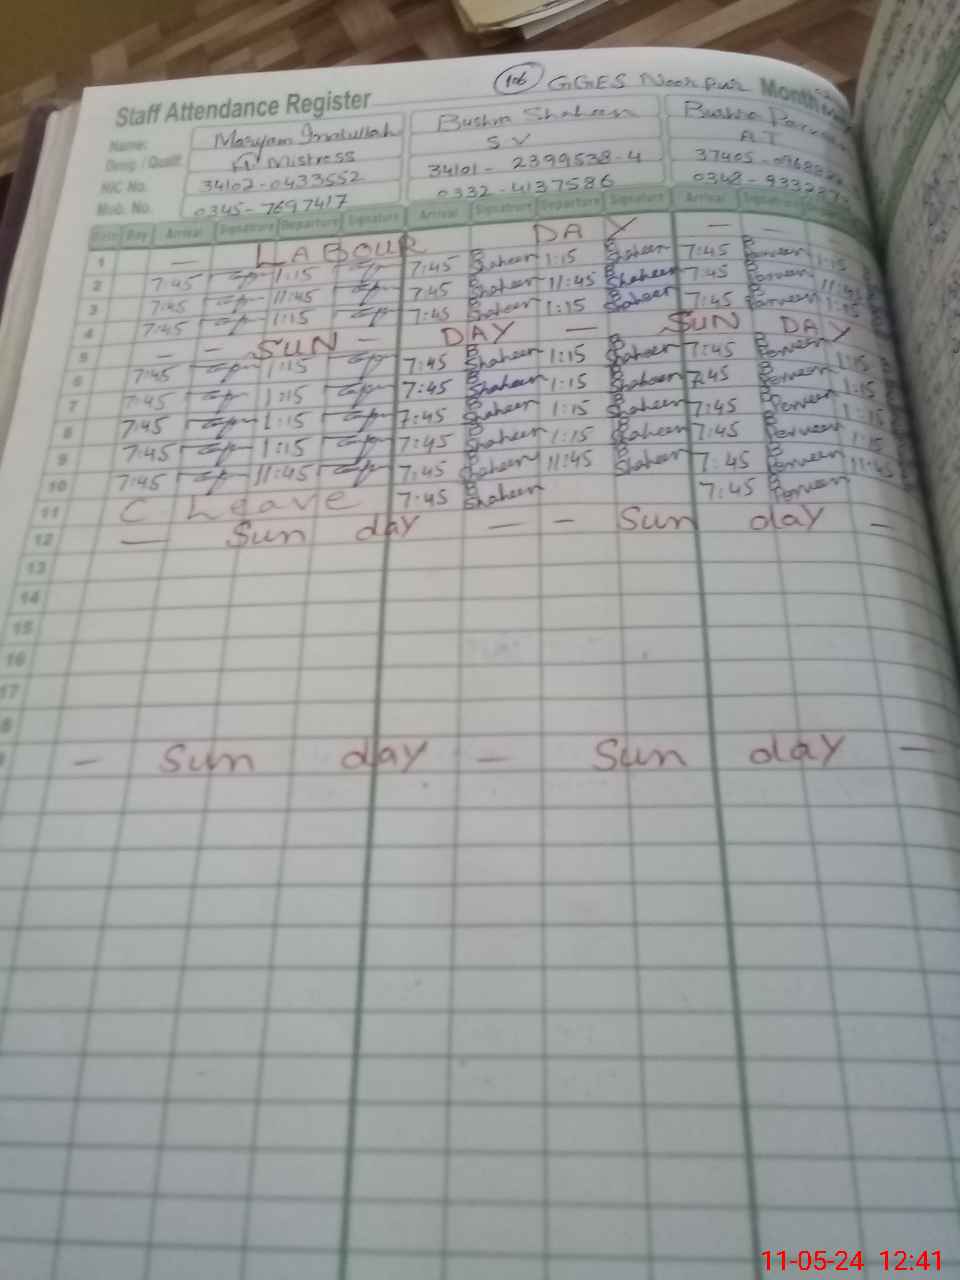 106 GGES Noor Pur Month
Staff Attendance Register
Name: Maryam Bushra Shaheen Bushra
Desig / Qualif: Mistress SV AT
NIC No. 34102-0433552 34101-2399538-4 37405-
Mob. No. 0345-7697417 0332-4137586 0348-
Date Day Arrival Signature Departure Signature Arrival Signature Departure Signature Arrival Signature
1 — LABOUR DAY — —
2 7:45 1:15 7:45 B Shaheen 1:15 B Shaheen 7:45 B Parveen 1:15
3 7:45 11:45 7:45 B Shaheen 11:45 B Shaheen 7:45 B Parveen 11:45
4 7:45 1:15 7:45 B Shaheen 1:15 B Shaheen 7:45 B Parveen 1:15
5 — — SUN — DAY — SUN DAY
6 7:45 1:15 7:45 B Shaheen 1:15 B Shaheen 7:45 B Perveen 1:15
7 7:45 1:15 7:45 B Shaheen 1:15 B Shaheen 7:45 B Perveen 1:15
8 7:45 1:15 7:45 B Shaheen 1:15 B Shaheen 7:45 B Perveen 1:15
9 7:45 1:15 7:45 B Shaheen 1:15 B Shaheen 7:45 B Perveen 1:15
10 7:45 11:45 7:45 B Shaheen 11:45 B Shaheen 7:45 B Perveen 11:45
11 C Leave 7:45 B Shaheen 7:45 B Perveen
12 — Sun day — — Sun day —
13
14
15
16
17
— Sun day — Sun day —
11-05-24 12:41